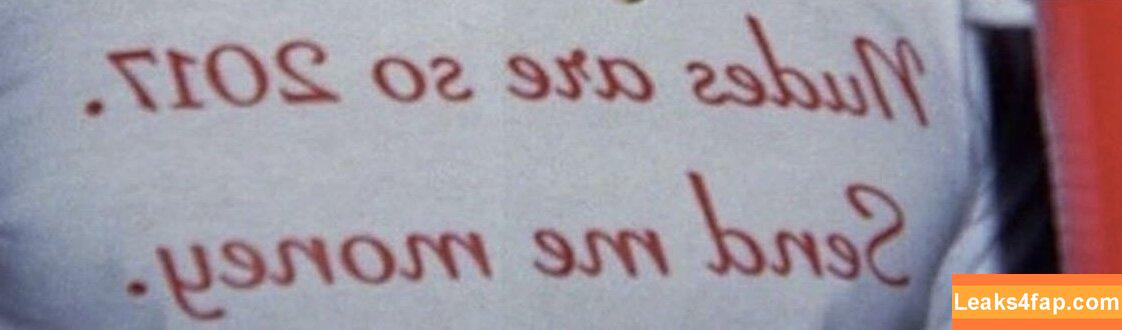 Nudes are so 2017.
Send me money.
Leaks4fap.com